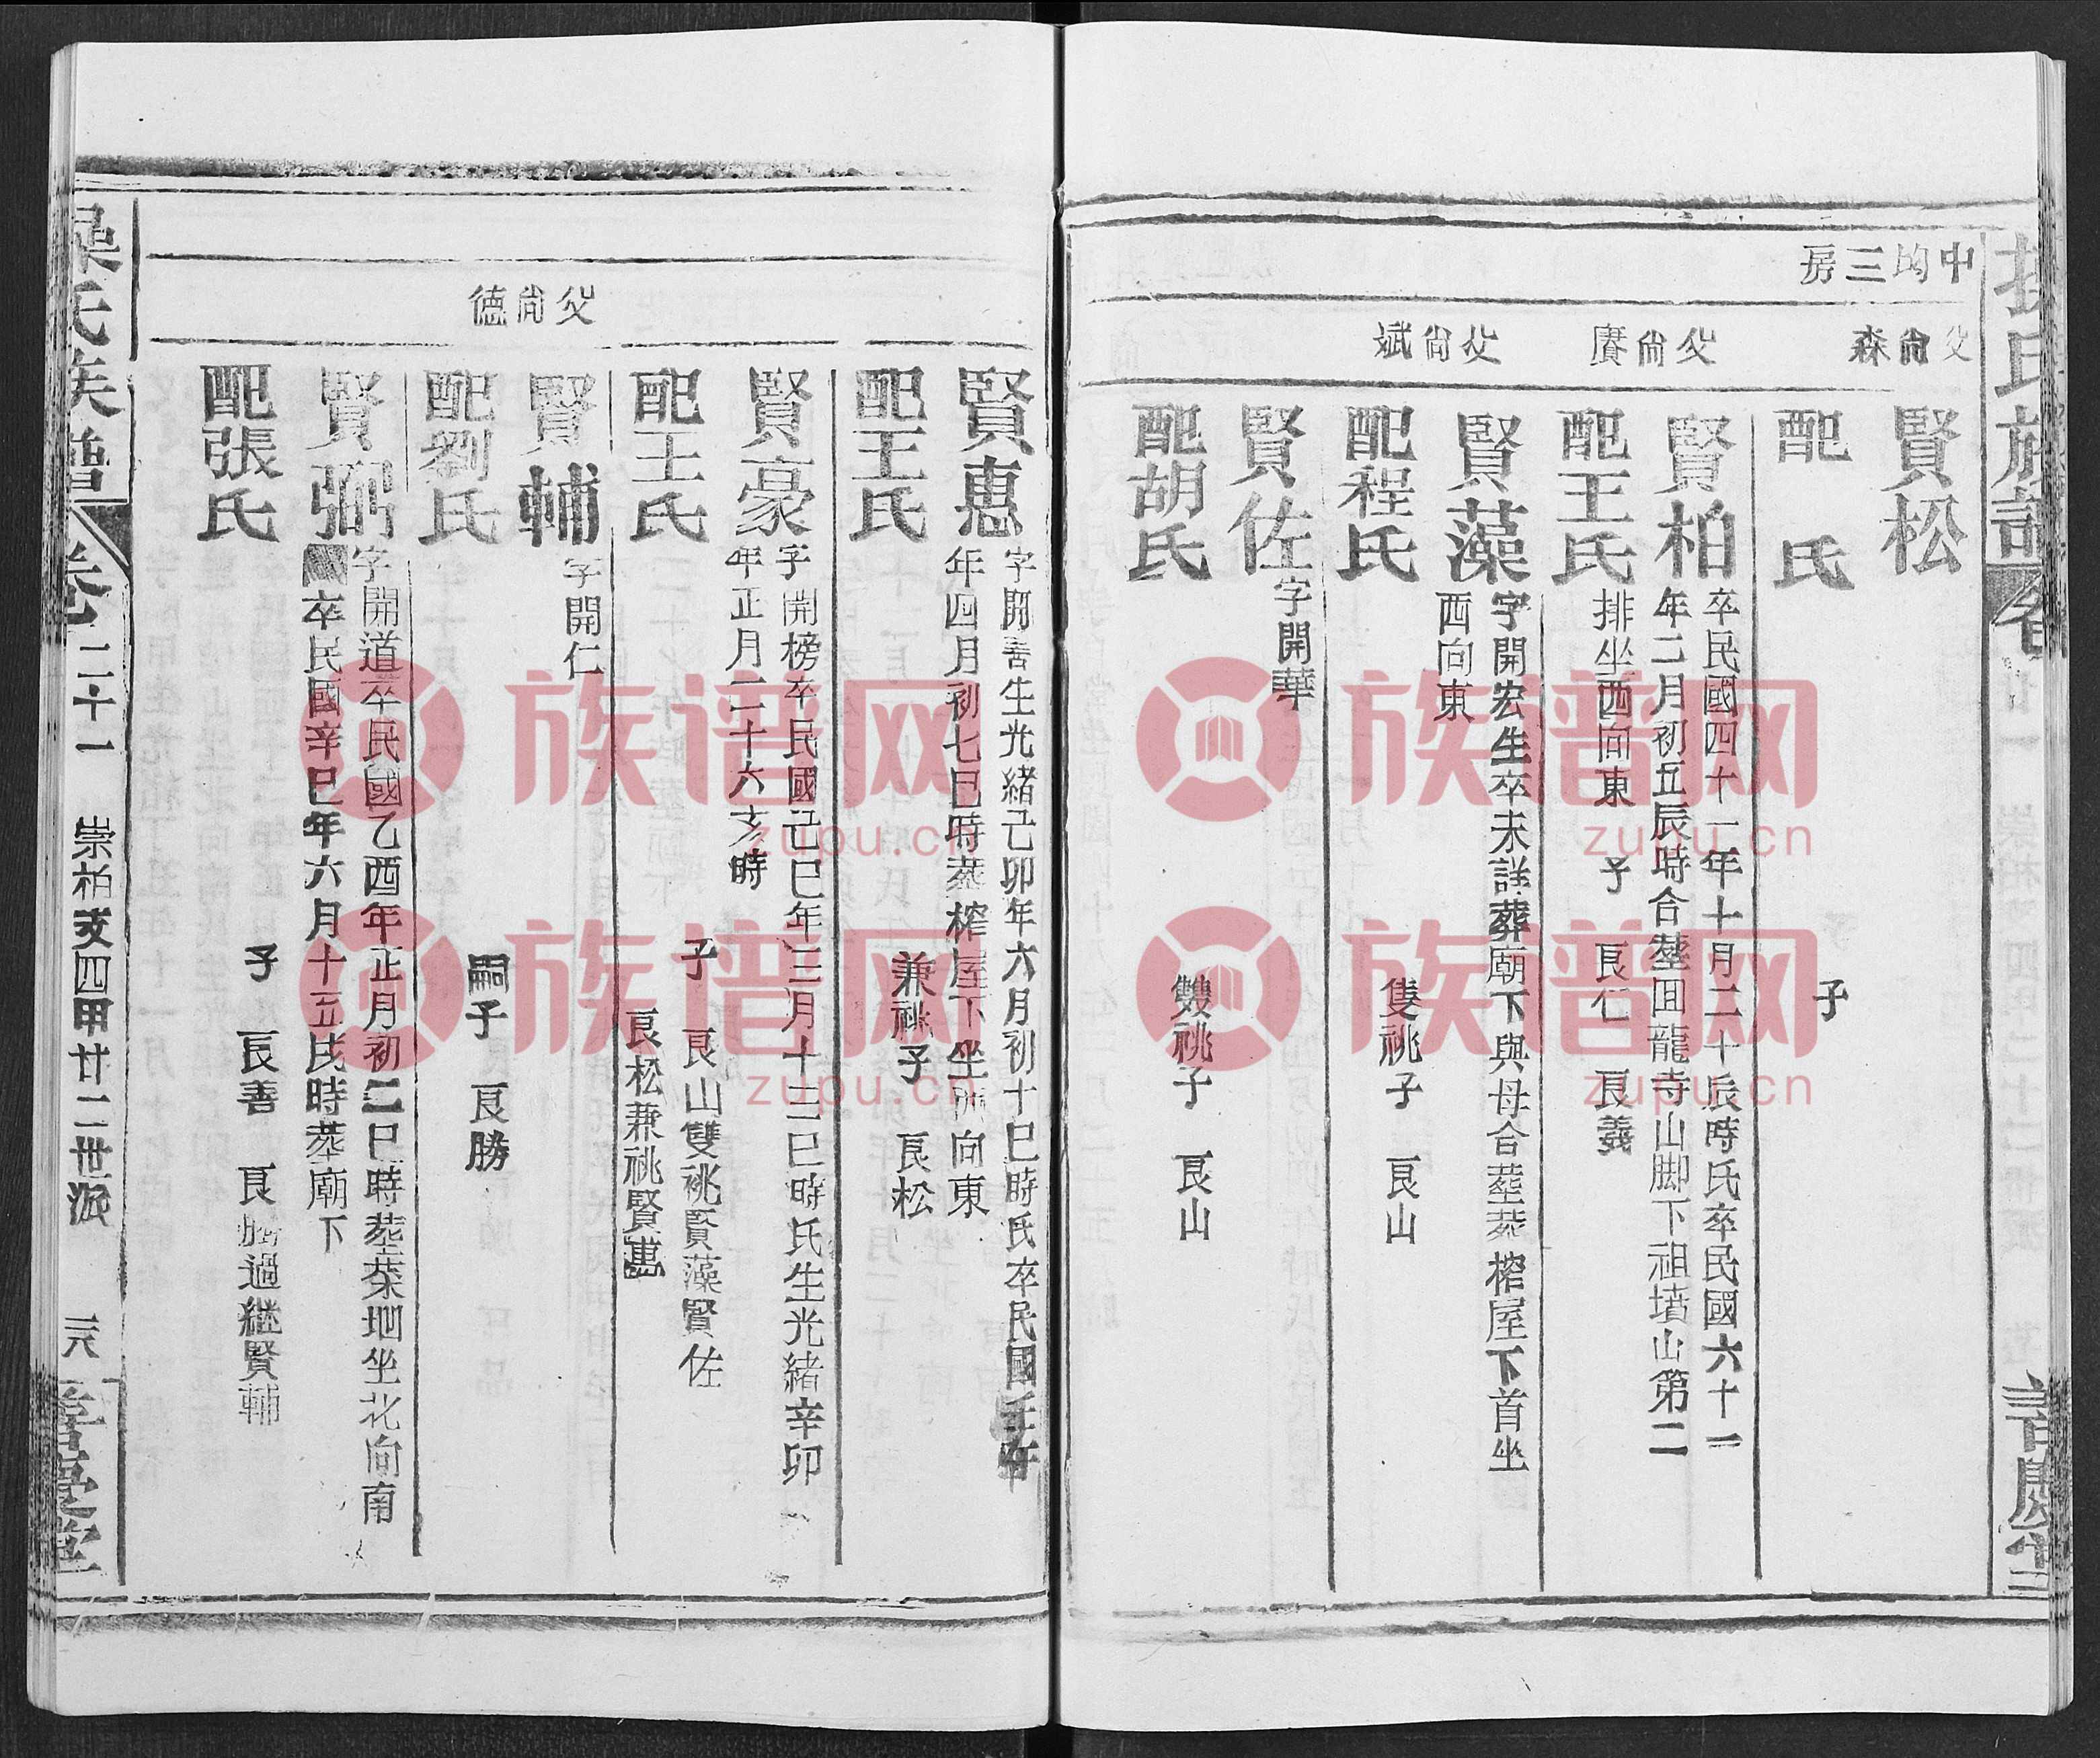 中均三房
父尚森
賢松
配 氏
子
父尚賡
賢柏
卒民國四十一年十月二十辰時氏卒民國六十一
年二月初五辰時合塟回龍寺山脚下祖墳山第二
配王氏
排坐西向東 子 良仁 良義
賢藻
字開宏生卒未詳葬廟下與母合塟塟榨屋下首坐
西向東
父尚斌
配程氏
雙祧子 良山
賢佐
字開華
配胡氏
雙祧子 良山
賢惠
字開善生光緒己卯年六月初十巳時氏卒民國壬午
年四月初七巳時塟榨屋下坐西向東
配王氏
兼祧子 良松
賢豪
字開榜卒民國己巳年三月十三巳時氏生光緒辛卯
年正月二十六亥時
配王氏
子 良山雙祧賢藻賢佐
良松兼祧賢惠
父尚德
賢輔
字開仁
配劉氏
嗣子 良勝
賢弼
字開道卒民國乙酉年正月初二巳時塟菜地坐北向南
卒民國辛巳年六月十五戌時塟廟下
配張氏
子 良善 良勝過繼賢輔
氏族譜
卷二十一
崇柏支四甲廿二世派
三八
族谱网
zupu.cn
族谱网
zupu.cn
族谱网
zupu.cn
族谱网
zupu.cn